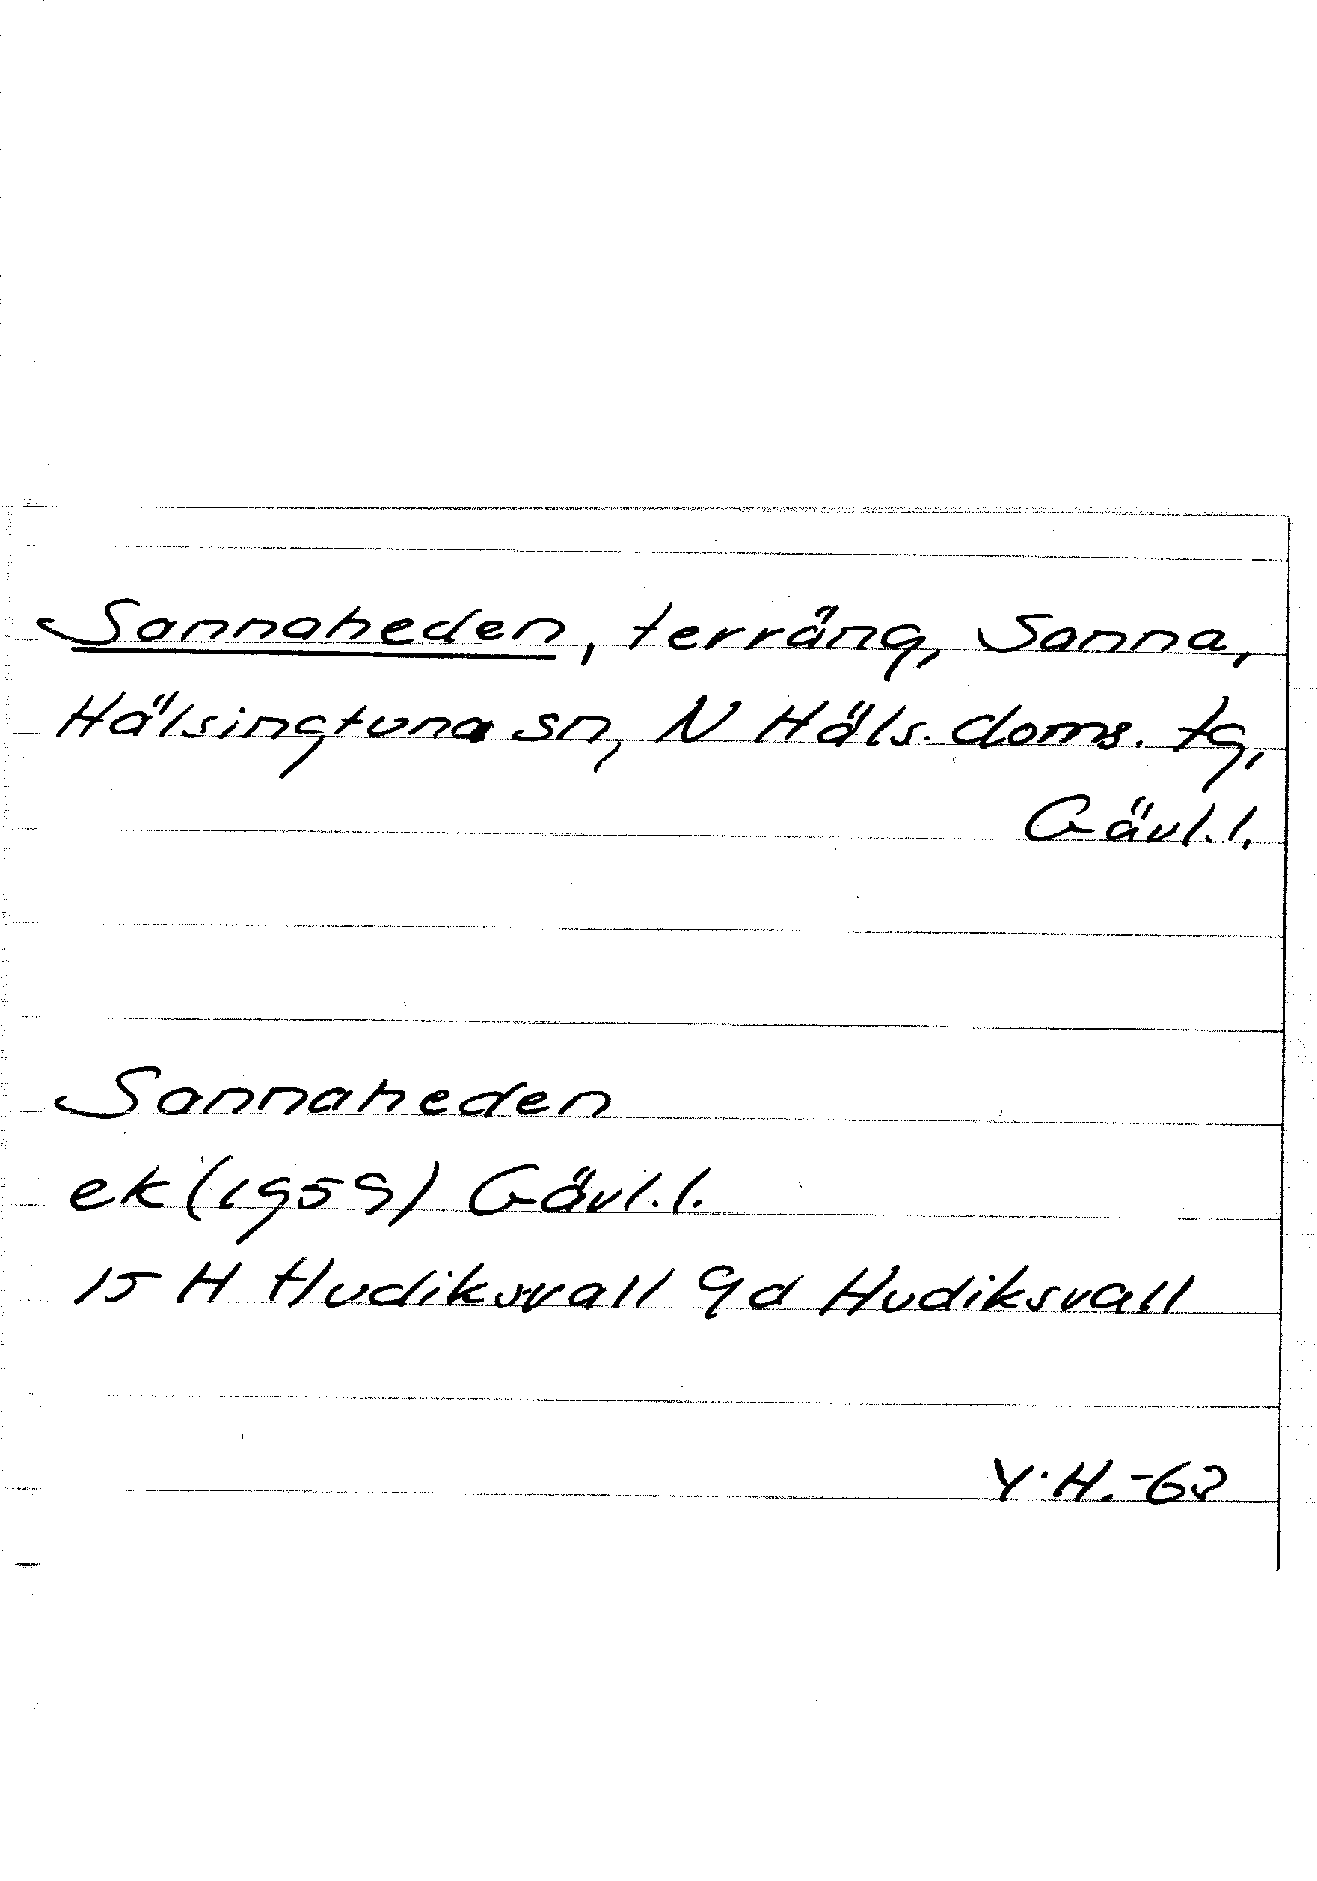 Sannaheden, terräng, Sanna,
Hälsingtuna sn, N Häls. doms. tg,
Gävl. l.
Sannaheden
ek (1959) Gävl. l.
15 H Hudiksvall 9d Hudiksvall
Y. H. -63